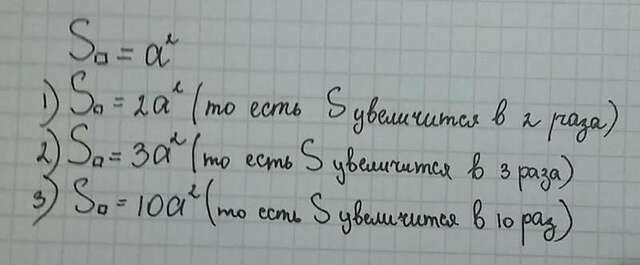 S□ = a²
1) S□ = 2a² (то есть S увеличится в 2 раза)
2) S□ = 3a² (то есть S увеличится в 3 раза)
3) S□ = 10a² (то есть S увеличится в 10 раз)